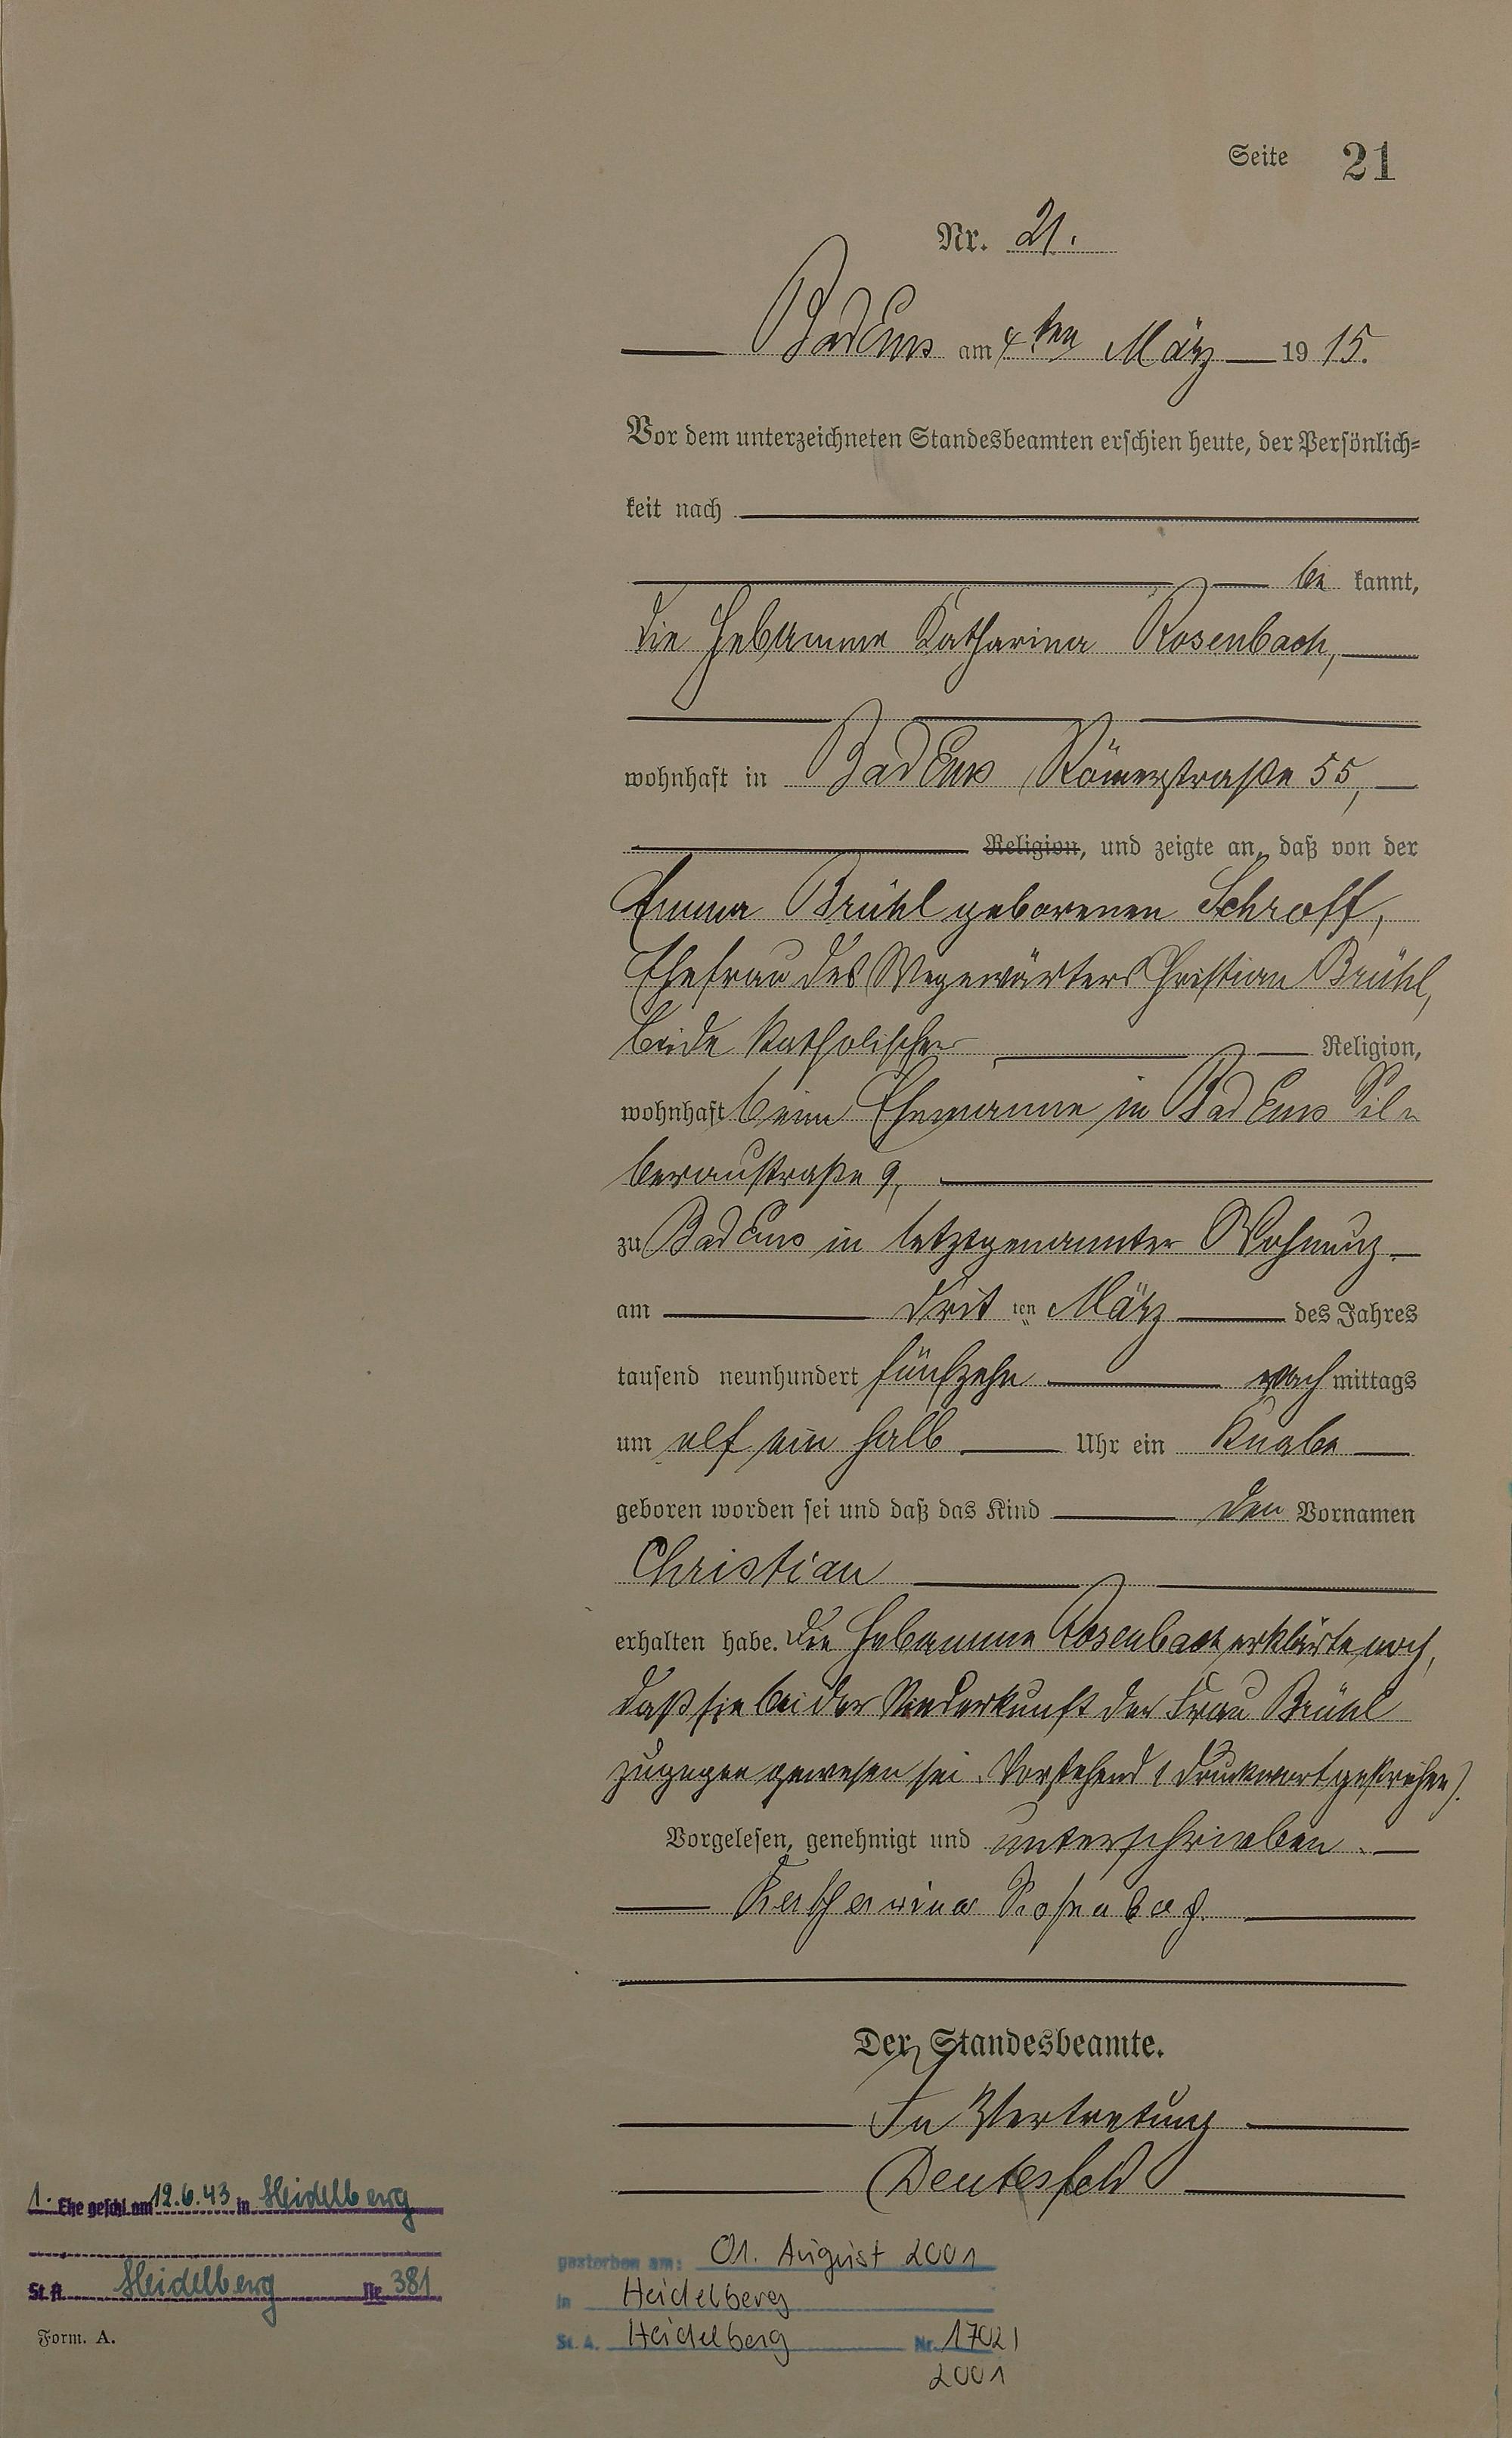 Seite 21
Nr. 21.
Bad Ems am 4ten März 1915.
Vor dem unterzeichneten Standesbeamten erschien heute, der Persönlich=
keit nach
be kannt,
die Hebamme Katharina Rosenbach,
wohnhaft in Bad Ems, Römerstraße 55,
Religion, und zeigte an, daß von der
Emma Brühl geborenen Schroff,
Ehefrau des Wegewärters Christian Brühl,
beide katholischer Religion,
wohnhaft beim Ehemanne in Bad Ems Sil-
beraustraße 9,
zu Bad Ems in letztgenannter Wohnung
am dritten März des Jahres
tausend neunhundert fünfzehn nachmittags
um elf ein halb Uhr ein Knabe
geboren worden sei und daß das Kind den Vornamen
Christian
erhalten habe. Die Hebamme Rosenbach erklärte noch,
daß sie bei der Niederkunft der Frau Brühl
zugegen gewesen sei. Vorstehend 1 Druckwort gestrichen).
Vorgelesen, genehmigt und unterschrieben.
Katharina Rosenbach.
Der Standesbeamte.
In Vertretung
Deutesfeld
1. Ehe geschl. am 12.6.43 in Heidelberg
St. A. Heidelberg Nr. 381
Form. A.
gestorben am: 01. August 2001
in Heidelberg
St. A. Heidelberg Nr. 1702/
2001